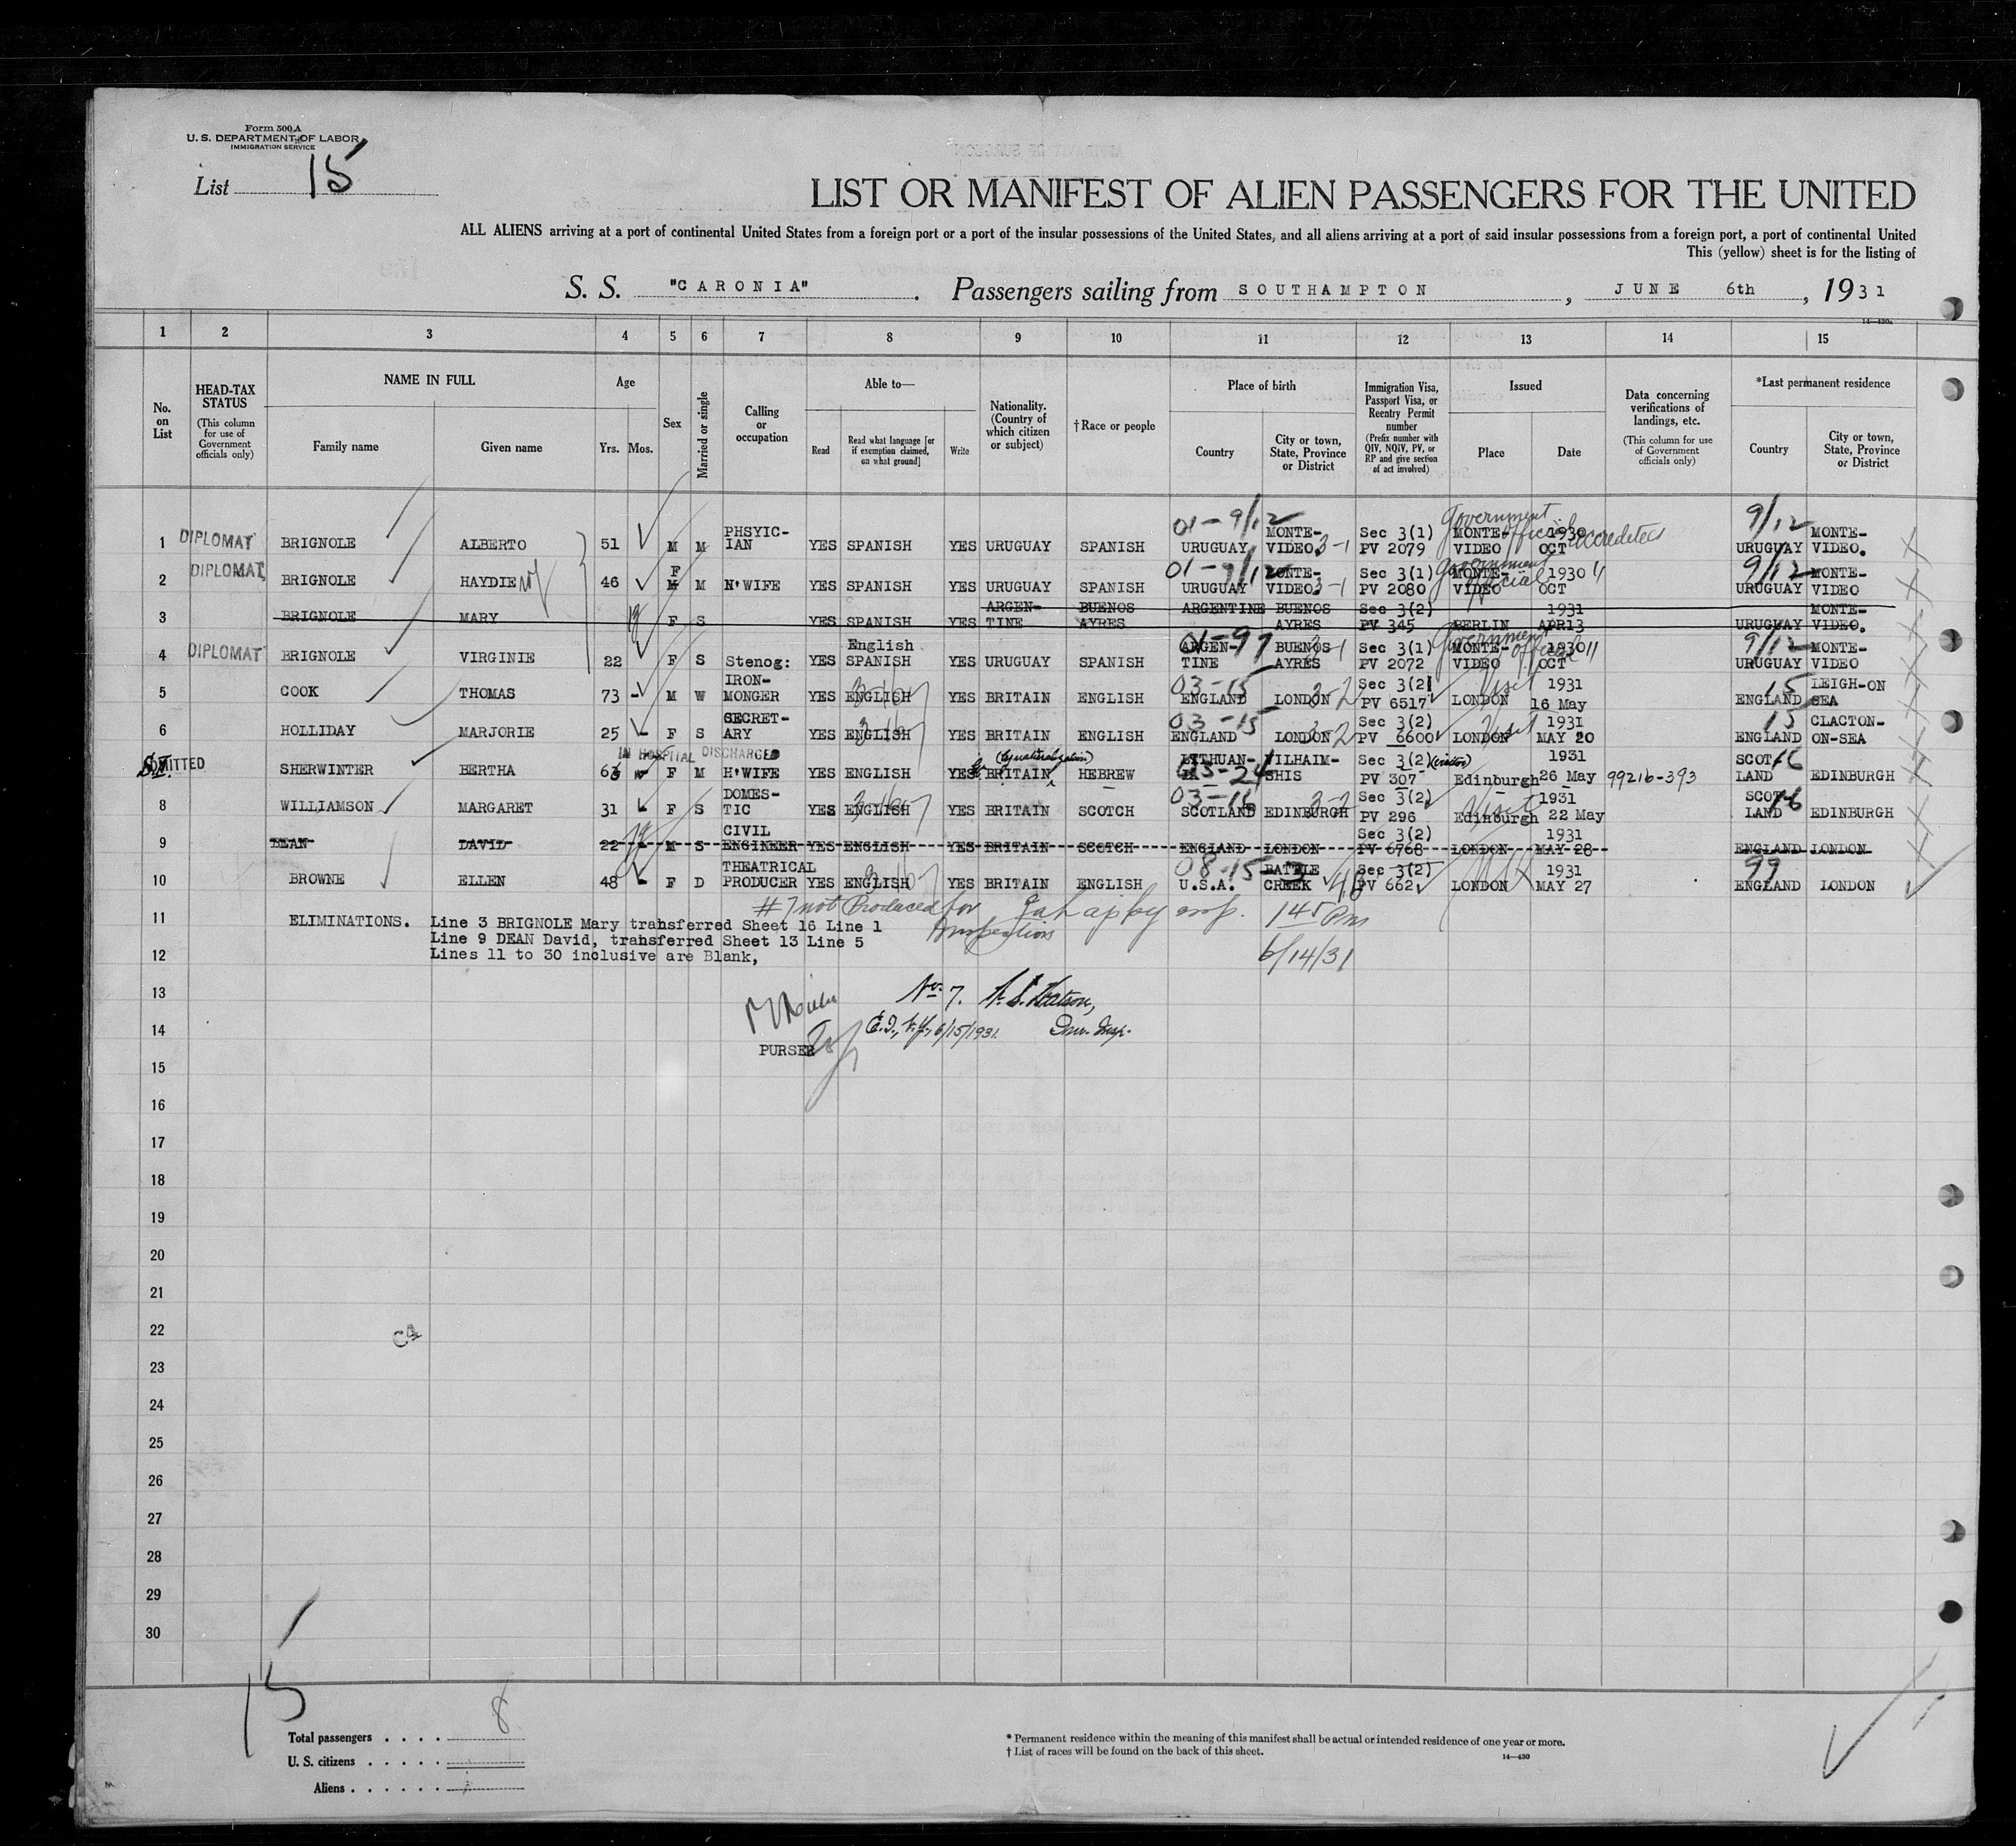 Form 500 A
U. S. DEPARTMENT OF LABOR
IMMIGRATION SERVICE
List 15
LIST OR MANIFEST OF ALIEN PASSENGERS FOR THE UNITED
ALL ALIENS arriving at a port of continental United States from a foreign port or a part of the insular possessions of the United States, and all aliens arriving at a port of said insular possessions from a foreign port, a port of continental United
This (yellow) sheet is for the listing of
S. S. "CARONIA". Passengers sailing from SOUTHAMPTON, JUNE 6th, 1931
14—430a
1 2 3 4 5 6 7 8 9 10 11 12 13 14 15
No. on List
HEAD-TAX STATUS (This column for use of Government officials only)
NAME IN FULL Family name Given name
Age Yrs. Mos.
Sex
Married or single
Calling or occupation
Able to— Read Read what language [or if exemption claimed, on what ground] Write
Nationality. (Country of which citizen or subject)
†Race or people
Place of birth Country City or town, State, Province or District
Immigration Visa, Passport Visa, or Reentry Permit number (Prefix number with QIV, NQIV, PV, or RP and give section of act involved)
Issued Place Date
Data concerning verifications of landings, etc. (This column for use of Government officials only)
*Last permanent residence Country City or town, State, Province or District
1 DIPLOMAT BRIGNOLE ALBERTO 51 M M PHSYIC-IAN YES SPANISH YES URUGUAY SPANISH 01-9/12 URUGUAY MONTE-VIDEO. 3-1 Sec 3(1) PV 2079 MONTE-VIDEO 1930 OCT Government Official accredited 9/12 URUGUAY MONTE-VIDEO.
2 DIPLOMAT BRIGNOLE HAYDIE 46 F M M H'WIFE YES SPANISH YES URUGUAY SPANISH 01-9/12 URUGUAY MONTE-VIDEO 3-1 Sec 3(1) PV 2080 MONTE-VIDEO 1930 OCT Government Official " 9/12 URUGUAY MONTE-VIDEO
3 BRIGNOLE MARY F S YES SPANISH YES ARGEN-TINE BUENOS AYRES ARGENTINE BUENOS AYRES Sec 3(2) PV 345 BERLIN 1931 APR13 URUGUAY MONTE-VIDEO.
4 DIPLOMAT BRIGNOLE VIRGINIE 22 F S Stenog: YES English SPANISH YES URUGUAY SPANISH 01-97 ARGEN-TINE BUENOS AYRES 3-1 Sec 3(1) PV 2072 MONTE-VIDEO 1930 OCT Government official " 9/12 URUGUAY MONTE-VIDEO
5 COOK THOMAS 73 - M W IRON-MONGER YES ENGLISH YES BRITAIN ENGLISH 03-15 ENGLAND LONDON 3-2 Sec 3(2) PV 6517 LONDON 1931 16 May Visit 15 ENGLAND LEIGH-ON SEA
6 HOLLIDAY MARJORIE 25 F S SECRET-ARY YES ENGLISH YES BRITAIN ENGLISH 03-15 ENGLAND LONDON 3-2 Sec 3(2) PV 6600 LONDON 1931 MAY 20 Visit 15 ENGLAND CLACTON-ON-SEA
ADMITTED S.I. IN HOSPITAL DISCHARGED
SHERWINTER BERTHA 63 F M H'WIFE YES ENGLISH YES Gr. BRITAIN (by naturalization) HEBREW LITHUAN-IA 03-24 VILHAIM-SHIS Sec 3(2) (visitor) PV 307 Edinburgh 1931 26 May 99216-393 16 SCOT-LAND EDINBURGH
8 WILLIAMSON MARGARET 31 F S DOMES-TIC YES ENGLISH YES BRITAIN SCOTCH 03-16 SCOTLAND EDINBURGH 3-2 Sec 3(2) PV 296 Edinburgh 1931 22 May Visit 16 SCOT-LAND EDINBURGH
9 DEAN DAVID 22 M S CIVIL ENGINEER YES ENGLISH YES BRITAIN SCOTCH ENGLAND LONDON Sec 3(2) PV 6768 LONDON 1931 MAY 28 ENGLAND LONDON
10 BROWNE ELLEN 48 F D THEATRICAL PRODUCER YES ENGLISH YES BRITAIN ENGLISH 08-15 U.S.A. BATTLE CREEK Sec 3(2) PV 662 LONDON 1931 MAY 27 99 ENGLAND LONDON
#7 not Produced for Inspection 145 Pm 6/14/31
11 ELIMINATIONS. Line 3 BRIGNOLE Mary transferred Sheet 16 Line 1
Line 9 DEAN David, transferred Sheet 13 Line 5
12 Lines 11 to 30 inclusive are Blank,
13 No. 7. Watson,
14 E.I., N.Y., 6/15/1931. Imm. Insp.
PURSER
15
16
17
18
19
20
21
22
CA
23
24
25
26
27
28
29
30
15
Total passengers . . . . 8
U. S. citizens . . . . .
Aliens . . . . . .
* Permanent residence within the meaning of this manifest shall be actual or intended residence of one year or more.
† List of races will be found on the back of this sheet.
14—430